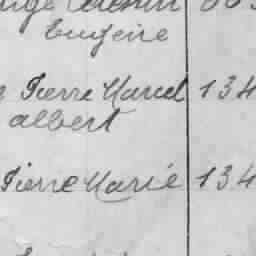 Eugène
Pierre Marcel 134
albert
Pierre Marie 134